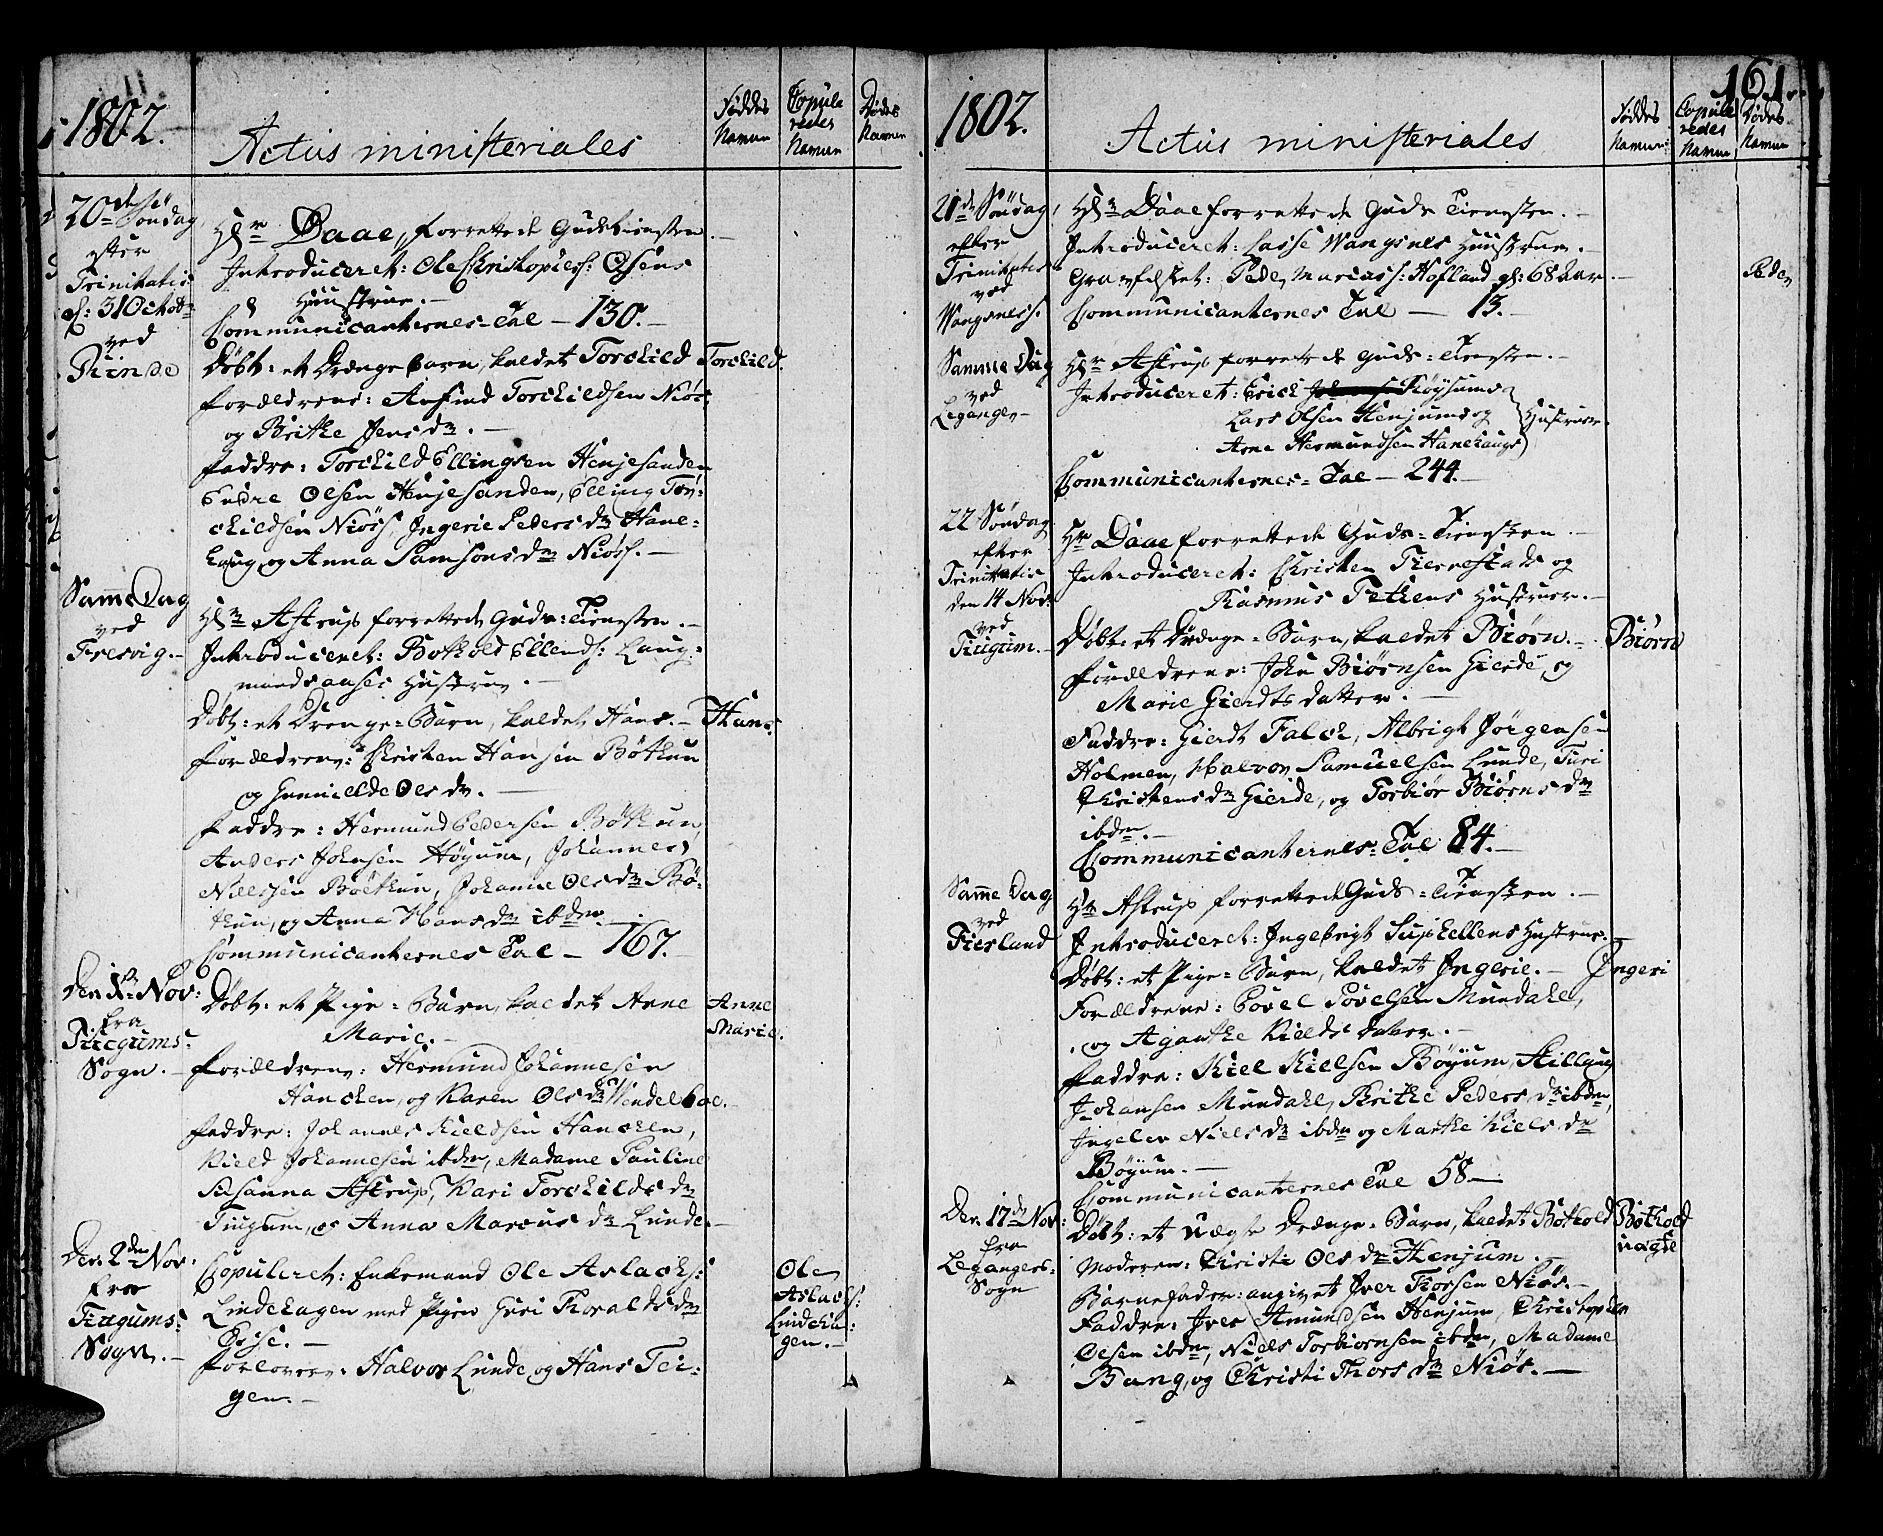 1802.
Actus ministeriales
Føddes Namne
Copule redes Namne
Dødes Namne
20de Søndag
efter
Trinitatis
d: 31 Octobr
ved
Rinde
Hr Daae forrettede Gudstienesten.
Introduceret: Ole Christophers: Øsens
Huustrue.
Communicanternes Tal - 130.
Døbt: et Drænge barn, kaldet Torchild
Torchild.
Forældrene: Anfind Torchildsen Niøs,
og Brithe Jens dr.
Faddre: Torchild Ellingsen Henjesanden
Endre Olsen Henjesanden, Elling Tor-
childsen Niøs, Ingerie Peders dr Hane-
haug, og Anna Samsons dr Niøs.
Samme Dag
ved
Fresvig.
Hr Astrup forrettede Guds-Tienesten.
Introduceret: Bothold Ellends: Laug-
mandsanses Hustrue.
Døbt: et Drenge-Barn, kaldet Hans.
Hans.
Forældrene: Christen Hansen Bøthun
og Gunnilde Ols dr.
Faddre: Hermund Pedersen Bøthun,
Anders Johnsen Høyum, Johannes
Nielssen Bøthun, Johanne Ols dr Bø-
thun, og Anna Hans dr ibdm.
Communicanternes Tal - 167.
Den 1te Nov:
fra
Tiugums-
Sogn.
Døbt: et Pige-Barn, kaldet Anne
Marie.
Anne
Marie.
Forældrene: Hermund Johannesen
Hanchen, og Karen Ols dr Windelboe.
Faddre: Johannes Kieldsen Hanchen,
Kield Johannesen ibdm, Madame Pauline
Susanna Astrup, Kari Torchilds dr
Tiugum, og Anna Marcus dr Lunde.
Den 2den Nov.
fra
Tiugums-
Sogn.
Copuleret: Enkemand Ole Aslachs:
Lindehagen med Pigen Guri Thoralds dr
Esse.
Forlovere: Halvor Lunde og Hans Tei-
gen.
Ole
Aslachs:
Lindeha-
gen.
161.
1802.
Actus ministeriales
Føddes Namne
Copule redes Namne
Dødes Namne
21de Søndag
efter
Trinitatis
ved
Wangsnes.
Hr Daae forrettede Guds Tienesten.
Introduceret: Lasse Wangsnes Huustrue.
Gravfestet: Peder Mariass: Hofland gl: 68 Aar
Peder
Communicanternes Tal - 13.
Samme Dag
ved
Leganger
Hr Astrup forrettede Guds-Tienesten.
Introduceret: Erich Røysums
Lars Olsen Henjums og
Arne Hermundsen Hanehaugs
Hustruer.
Communicanternes-Tal - 244.
22 Søndag
efter
Trinitatis
den 14 Nov.
ved
Tiugum.
Hr Daae forrettede Guds-Tienesten.
Introduceret: Christen Tierrestads og
Rasmus Fethens Hustruer.
Døbt: et Drænge-Barn, kaldet Biørn.
Biørn
Forældrene: John Biørnsen Gierde, og
Marie Gierdts datter.
Faddre: Gierdt Falch, Albrigt Jørgensen
Holmen, Halvor Samuelsen Lunde, Turi
Christens dr Gierde, og Torbiør Biørns dr
ibdm.
Communicanternes-Tal 84.
Samme Dag
ved
Fierland
Hr Astrup forrettede Guds-Tienesten.
Introduceret: Ingebrigt Suphellens Hustrue.
Døbt: et Pige-Barn, kaldet Ingerie.
Ingeri
Forældrene: Povel Povelsen Mundahl,
og Aganthe Kields datter.
Faddre: Kiel Kielsen Bøyum, Stillaug
Johansen Mundahl, Brithe Peders dr ibdm,
Ingelev Niels dr ibdm og Marthe Kiels dr
Bøyum.
Communicanternes Tal 58
Den 17de Nov:
fra
Legangers-
Sogn
Døbt: et uægte Drænge-Barn, kaldet Bothold
Bothold
uægte
Moderen: Christi Ols dr Henjum.
Barnefader: angivet Iver Thorsen Niøs.
Faddre: Iver Amundsen Henjum, Christopher
Olsen ibdm, Niels Torbiornsen ibdm, Madame
Bang, og Christi Thors dr Niøs.